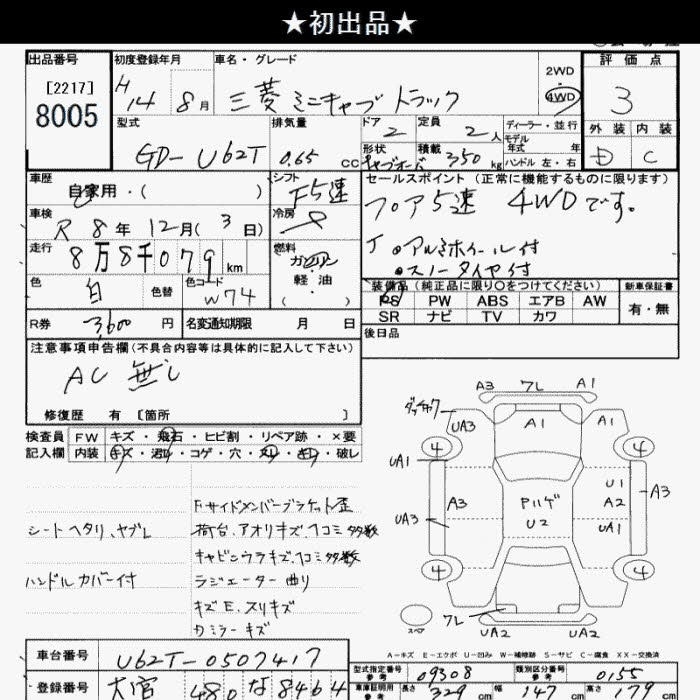 ★初出品★
出品番号
[2217]
8005
初度登録年月
H14 年 8月
車名・グレード
三菱 ミニキャブ トラック
2WD
4WD
評価点
3
外装 内装
D C
型式
GD-U62T
排気量
0.65 cc
ドア
2
定員
2人
ディーラー・並行
モデル
年式 年
ハンドル 左・右
形状
キャブオーバ
積載
350 kg
車歴
自家用・( )
シフト
F5速
セールスポイント (正常に機能するものに限ります)
フロア5速 4WDです。
・アルミホイール付
・スノータイヤ付
車検
R 8年 12月(3日)
冷房
走行
8万8千079km
燃料
ガソリン
軽・油
( )
色
白
色替
色コード
W74
装備品(純正品に限り〇をつけてください)
PS PW ABS エアB AW
SR ナビ TV カワ
新車保証書
有・無
R券
3,600円
名変通知期限 月 日
後日品
注意事項申告欄(不具合内容等は具体的に記入して下さい)
AC 無し
修復歴 有 [箇所 ]
検査員
記入欄
FW キズ・飛石・ヒビ割・リペア跡・×要
内装 キズ・汚れ・コゲ・穴・スレ・キレ・破レ
シートヘタリ、ヤブレ
ハンドルカバー付
Fサイドメンバーブラケット歪
荷台、アオリキズ、凹コミ多数
キャビンウラキズ、凹コミ多数
ラジエーター曲り
キズE、スリキズ
カミラーキズ
A3 フレ A1
UA3 A1 A1
4 4
UA1
A3 U1
A2 A3
UA3 UA1
U2
4 4
スペア
フレ UA2 UA2
A-キズ E-エクボ U-凹み W-補修跡 S-サビ C-腐食 XX-交換済
車台番号
U62T-0507417
登録番号
大宮 480 な 8464
型式指定番号
参考
09308
類別区分番号
参考
0155
車庫証明用
参考
長さ 329 幅 147 高さ 179 cm